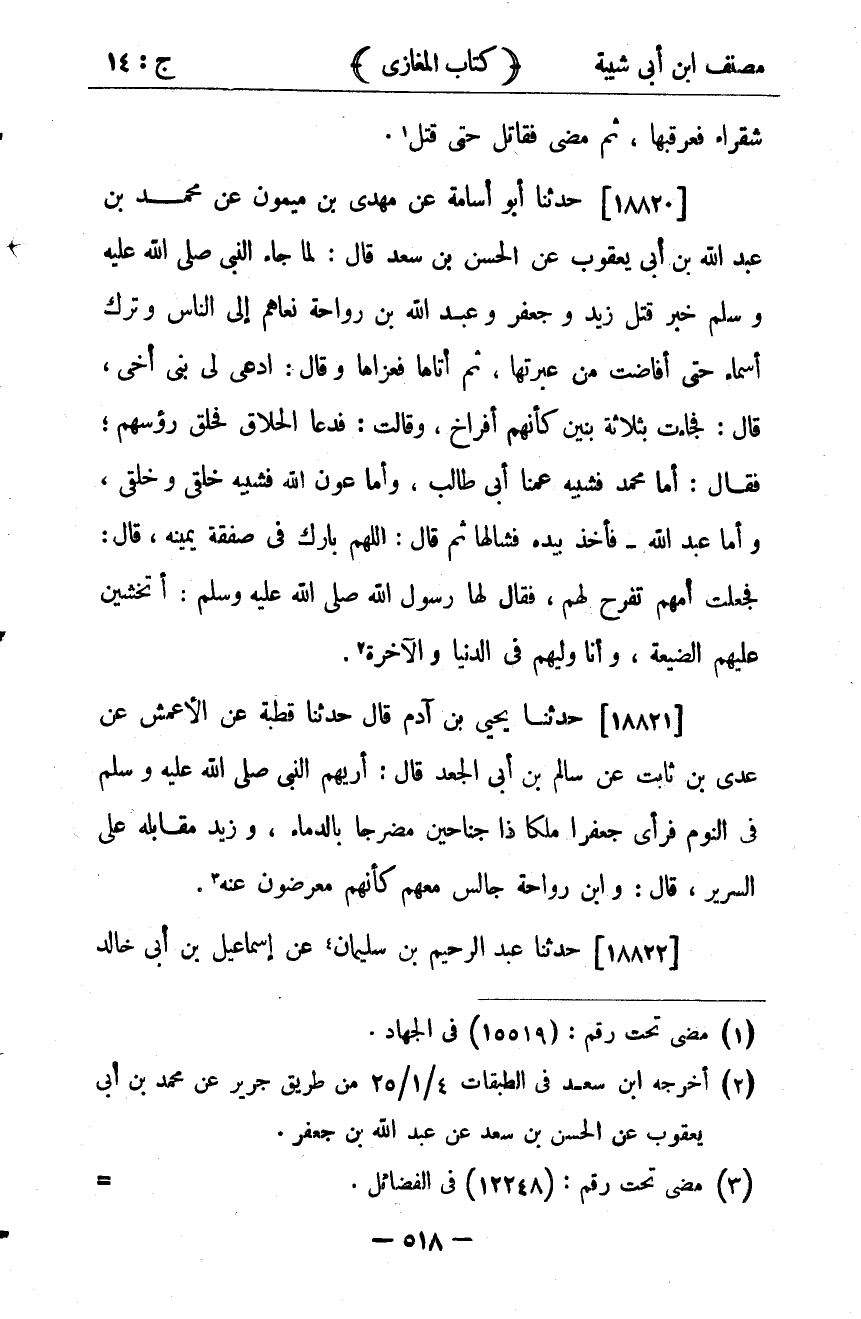 مصنف ابن أبى شيبة ﴿ كتاب المغازى ﴾ ج : ١٤
شقراء فعرقبها ، ثم مضى فقاتل حتى قتل١ .
[١٨٨٢٠] حدثنا أبو أسامة عن مهدى بن ميمون عن محمد بن
عبد الله بن أبى يعقوب عن الحسن بن سعد قال : لما جاء النبى صلى الله عليه
و سلم خبر قتل زيد و جعفر و عبد الله بن رواحة نعاهم إلى الناس و ترك
أسماء حتى أفاضت من عبرتها ، ثم أتاها فعزاها و قال : ادعى لى بنى أخى ،
قال : فجاءت بثلاثة بنين كأنهم أفراخ ، وقالت : فدعا الحلاق فحلق رؤسهم ؛
فقال : أما محمد فشبيه عمنا أبى طالب ، وأما عون الله فشبيه خلقى و خلقى ،
و أما عبد الله ـ فأخذ بيده فشالها ثم قال : اللهم بارك فى صفقة يمينه ، قال :
فجعلت أمهم تفرح لهم ، فقال لها رسول الله صلى الله عليه وسلم : أ تخشين
عليهم الضيعة ، و أنا وليهم فى الدنيا و الآخرة٢ .
[١٨٨٢١] حدثنا يحيى بن آدم قال حدثنا قطبة عن الأعمش عن
عدى بن ثابت عن سالم بن أبى الجعد قال : أريهم النبى صلى الله عليه و سلم
فى النوم فرأى جعفرا ملكا ذا جناحين مضرجا بالدماء ، و زيد مقابله على
السرير ، قال : و ابن رواحة جالس معهم كأنهم معرضون عنه٣ .
[١٨٨٢٢] حدثنا عبد الرحيم بن سليمان٤ عن إسماعيل بن أبى خالد
(١) مضى تحت رقم : (١٥٥١٩) فى الجهاد .
(٢) أخرجه ابن سعد فى الطبقات ٤/١/٢٥ من طريق جرير عن محمد بن أبى
يعقوب عن الحسن بن سعد عن عبد الله بن جعفر .
(٣) مضى تحت رقم : (١٢٢٤٨) فى الفضائل . =
— ٥١٨ —